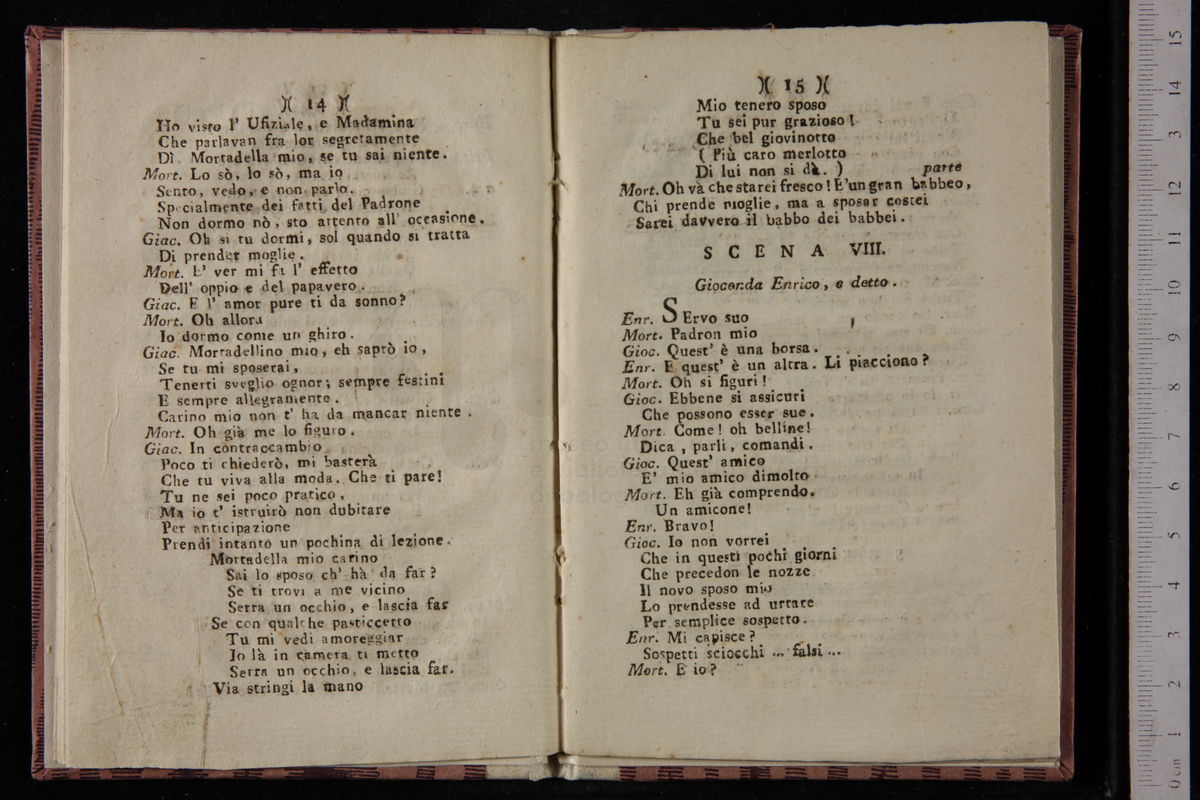 )( 14 )(
Ho visto l' Ufiziale, e Madamina
Che parlavan fra lor segretamente
Dì Mortadella mio, se tu sai niente.
Mort. Lo sò, lo sò, ma io
Sento, vedo, e non parlo.
Specialmente dei fatti del Padrone
Non dormo nò, sto attento all' occasione.
Giac. Oh si tu dormi, sol quando si tratta
Di prender moglie.
Mort. E' ver mi fa l' effetto
Dell' oppio e del papavero.
Giac. E l' amor pure ti da sonno?
Mort. Oh allora
Io dormo come un ghiro.
Giac. Mortadellino mio, eh saprò io,
Se tu mi sposerai,
Tenerti sveglio ognor; sempre festini
E sempre allegramente.
Carino mio non t' ha da mancar niente.
Mort. Oh già me lo figuro.
Giac. In contraccambio
Poco ti chiederò, mi basterà
Che tu viva alla moda. Che ti pare!
Tu ne sei poco pratico,
Ma io t' istruirò non dubitare
Per anticipazione
Prendi intanto un pochina di lezione.
Mortadella mio carino
Sai lo sposo ch' hà da far?
Se ti trovi a me vicino
Serra un occhio, e lascia far
Se con qualche pasticcetto
Tu mi vedi amoreggiar
Io là in camera ti metto
Serra un occhio, e lascia far.
Via stringi la mano
)( 15 )(
Mio tenero sposo
Tu sei pur grazioso!
Che bel giovinotto
( Più caro merlotto
Di lui non si dà. ) parte
Mort. Oh và che starei fresco! E' un gran babbeo,
Chi prende moglie, ma a sposar costei
Sarei davvero il babbo dei babbei.
SCENA VIII.
Gioconda Enrico, e detto.
Enr. SErvo suo
Mort. Padron mio
Gioc. Quest' è una borsa.
Enr. E quest' è un altra. Li piacciono?
Mort. Oh si figuri!
Gioc. Ebbene si assicuri
Che possono esser sue.
Mort. Come! oh belline!
Dica, parli, comandi.
Gioc. Quest' amico
E' mio amico dimolto
Mort. Eh già comprendo.
Un amicone!
Enr. Bravo!
Gioc. Io non vorrei
Che in questi pochi giorni
Che precedon le nozze
Il novo sposo mio
Lo prendesse ad urtare
Per semplice sospetto.
Enr. Mi capisce?
Sospetti sciocchi ... falsi ...
Mort. E io?
0 cm 1 2 3 4 5 6 7 8 9 10 11 12 13 14 15